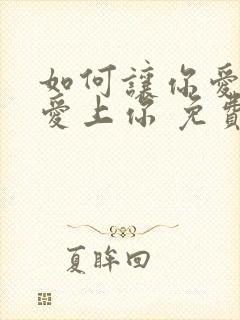 如何讓你愛
愛上你 免費
夏眸回